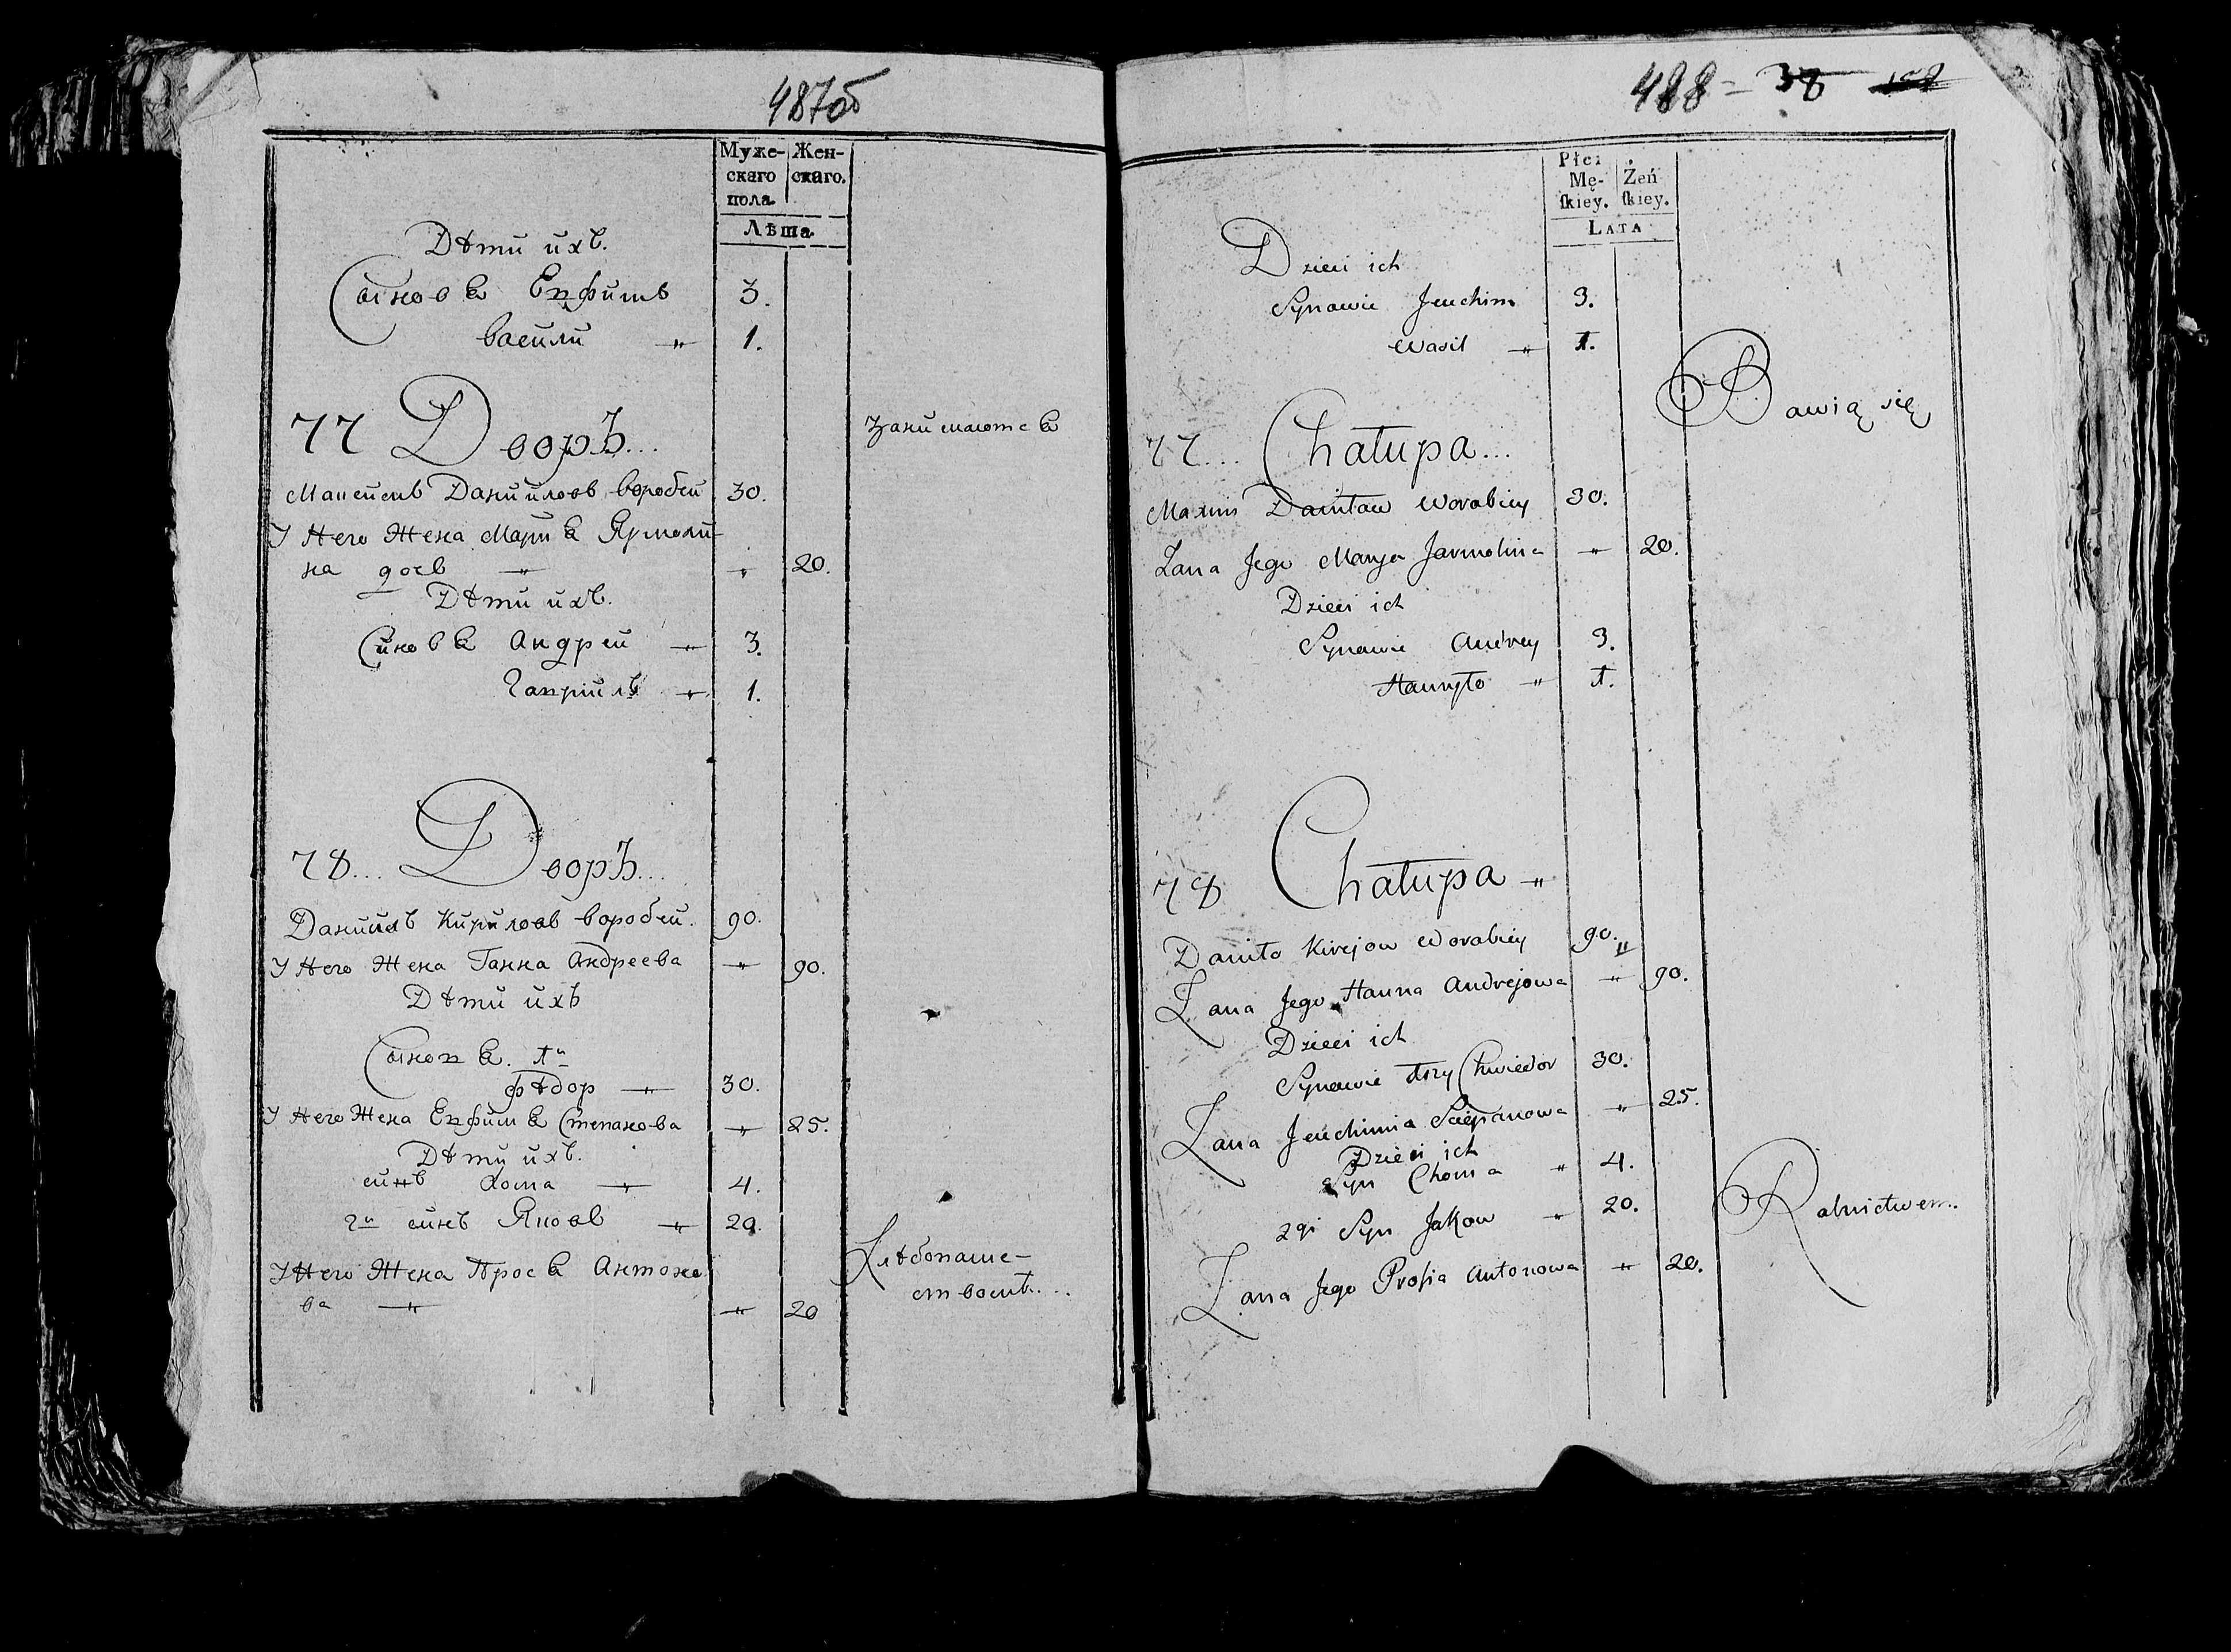 487об
Муже- Жен-
скаго скаго.
пола.
Лѣта.
Дѣти ихъ.
Сыновя Евфимъ 3.
Васили " 1.
77 Дворъ...
Занимаются
Максимъ Даниловъ Воробей 30.
У Него Жена Мария Ярмоли-
на дочь " " 20.
Дѣти ихъ.
Синовя Андрей " 3.
Гаврилъ " 1.
78... Дворъ...
Данилъ Кириловъ Воробей. 90.
У Него Жена Ганна Андреева " 90.
Дѣти ихъ
Сыновя. 1й
Фѣдор " 30.
У Него Жена Евфимия Степанова " 25.
Дѣти ихъ.
синъ Хома " 4.
2й синъ Яковъ " 20.
У Него Жена Прося Антоно
ва " " 20
Хлѣбопаше-
ствомъ...
488 = 38
Płci
Mę- Żeń
ſkiey. ſkiey.
LATA
Dzieci ich
Synowie Jeuchim 3.
Wasil " 1.
Bawią się
77... Chałupa...
Maxim Daniłow Worobiey 30.
Żana Jego Marya Jarmolina " 20.
Dzieci ich
Synowie Andrey 3.
Hauryło " 1.
78 Chałupa "
Daniło Kirejow Worobiey 90. "
Żana Jego Hanna Andrejowa " 90.
Dzieci ich
Synowie 1szy Chwiedor 30.
Żana Jeuchimia Sciepanowa " 25.
Dzieci ich
Syn Choma " 4.
2gi Syn Jakow " 20.
Żana Jego Prosia Antonowa " 20.
Rolnictwem..